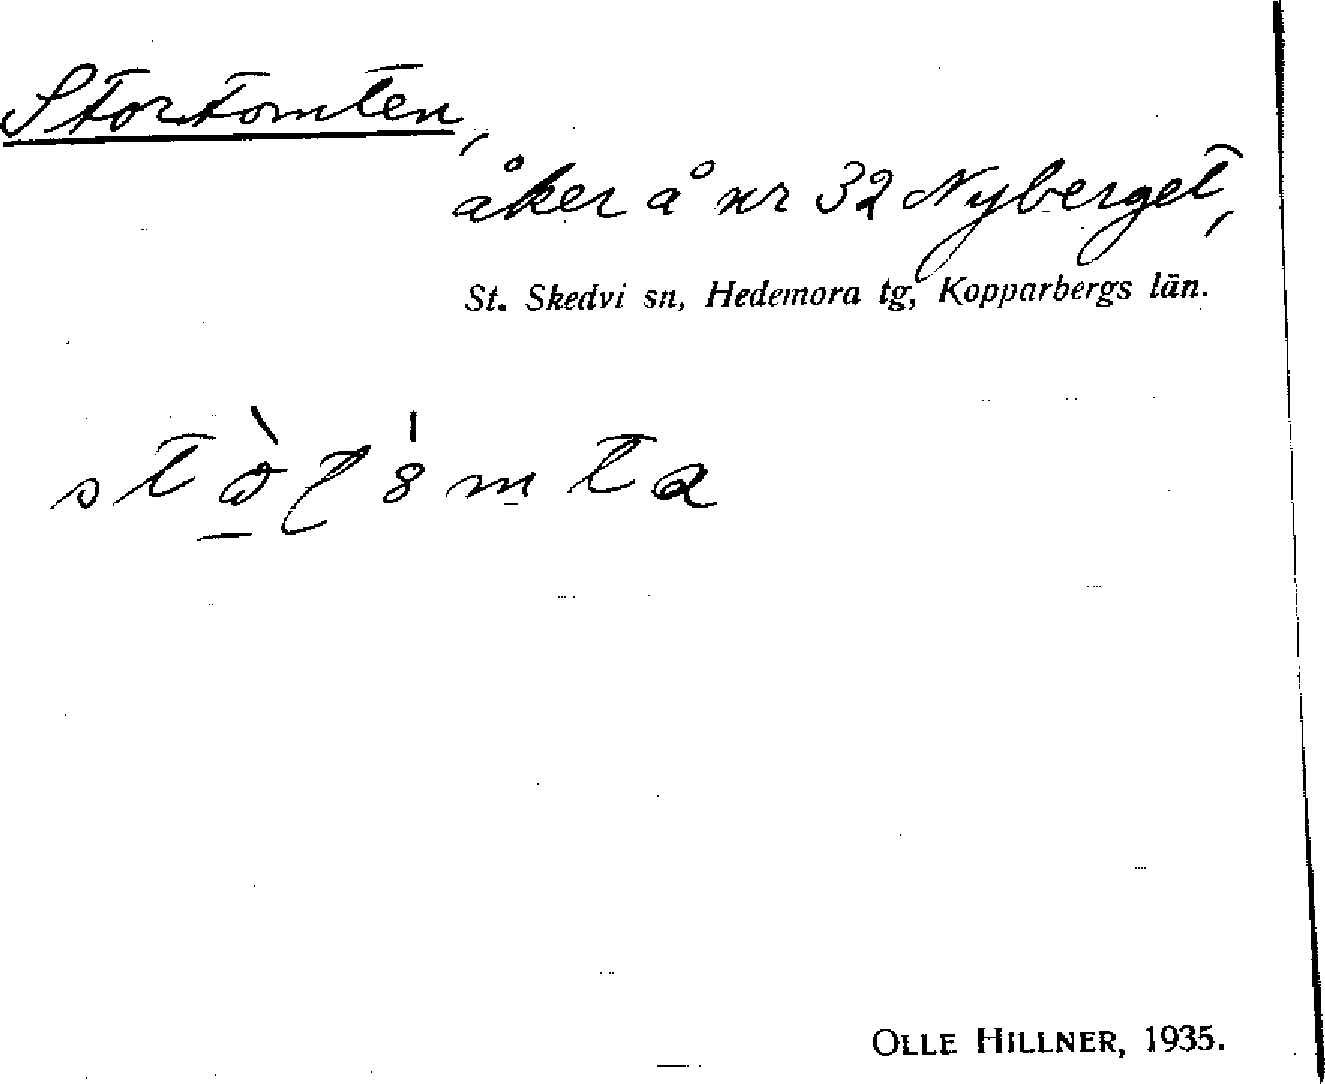 Stortomten,
åker å nr 32 Nyberget,
St. Skedvi sn, Hedemora tg, Kopparbergs län.
OLLE HILLNER, 1935.